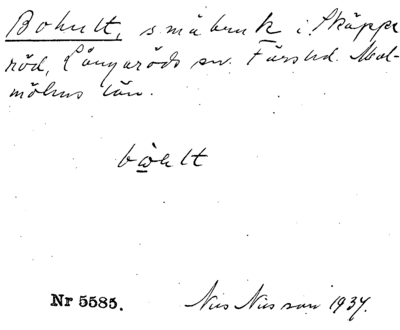 Bohult, småbruk i Skäppe
röd, Långaröds sn. Färs hd. Mal-
möhus län.
bohlt
Nr 5585. Nils Nilsson 1937.